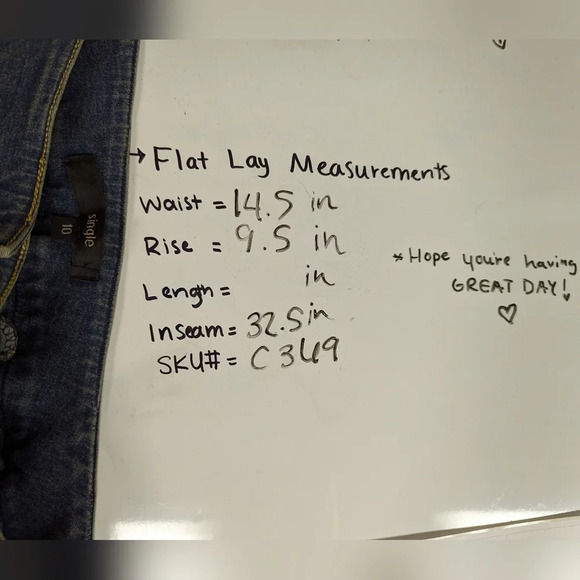 → Flat Lay Measurements
Waist = 14.5 in
Rise = 9.5 in
Length = in
Inseam = 32.5 in
SKU# = C349
* Hope you're having
GREAT DAY!
♡
single
10